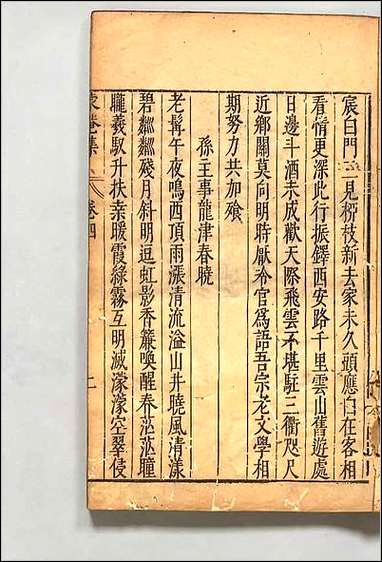 宸白門一見桞枝新去家未久頭應白在客相
看情更深此行振鐸西安路千里雲山舊遊處
日邊斗酒未成歡天際飛雲不堪駐三衢咫尺
近鄉關莫向明時厭冷官爲語吾宗老文學相
期努力共加飧
孫主事龍津春曉
老髯午夜鳴西頂雨漲清流溢山井曉風清漾
碧粼粼殘月斜明逗虹影香簾喚醒春茫茫瞳
朧羲馭升扶桒暖霞綠霧互明滅濛濛空翠侵
菴集 卷四 上